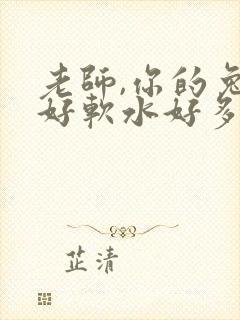 老師,你的兔
好軟水好多
芷清